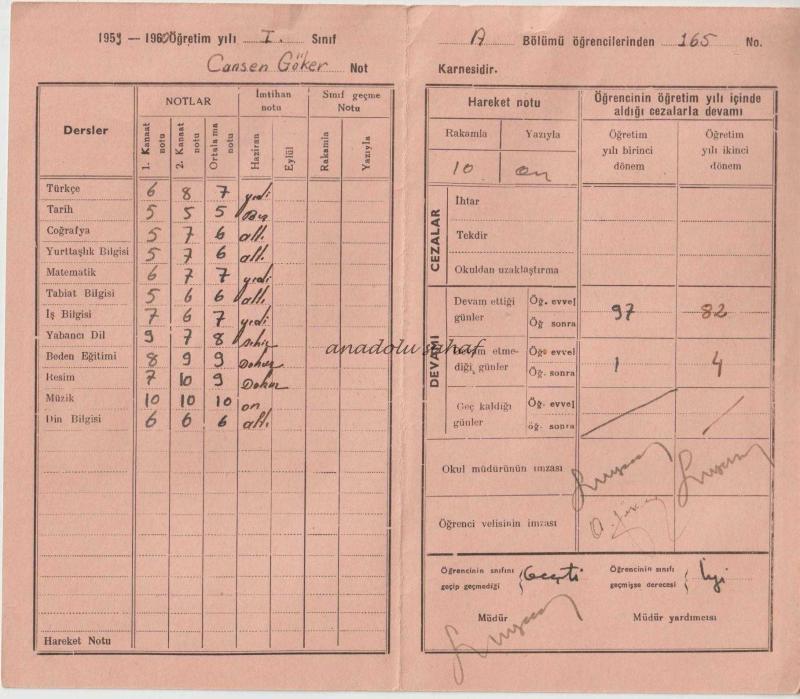 1959 — 1960 Öğretim yılı I. Sınıf
Cansen Göker Not
Dersler
NOTLAR
İmtihan notu
Sınıf geçme Notu
1. Kanaat notu
2. Kanaat notu
Ortalama notu
Haziran
Eylül
Rakamla
Yazıyla
Türkçe 6 8 7 yedi
Tarih 5 5 5 Beş
Coğrafya 5 7 6 altı
Yurttaşlık Bilgisi 5 7 6 altı
Matematik 6 7 7 yedi
Tabiat Bilgisi 5 6 6 altı
İş Bilgisi 7 6 7 yedi
Yabancı Dil 9 7 8 sekiz
Beden Eğitimi 8 9 9 Dokuz
Resim 7 10 9 Dokuz
Müzik 10 10 10 on
Din Bilgisi 6 6 6 altı
Hareket Notu
A Bölümü öğrencilerinden 165 No.
Karnesidir.
Hareket notu
Öğrencinin öğretim yılı içinde
aldığı cezalarla devamı
Rakamla Yazıyla
Öğretim yılı birinci dönem
Öğretim yılı ikinci dönem
10 on
CEZALAR
İhtar
Tekdir
Okuldan uzaklaştırma
DEVAMI
Devam ettiği günler
Öğ. evvel
Öğ sonra
97 82
anadolu sahaf
Devam etmediği günler
Öğ. evvel
Öğ. sonra
1 4
Geç kaldığı günler
Öğ. evvel
öğ. sonra
Okul müdürünün imzası
Öğrenci velisinin imzası
Öğrencinin sınıfını
geçip geçmediği
Geçti
Öğrencinin sınıfı
geçmişse derecesi
İyi
Müdür
Müdür yardımcısı